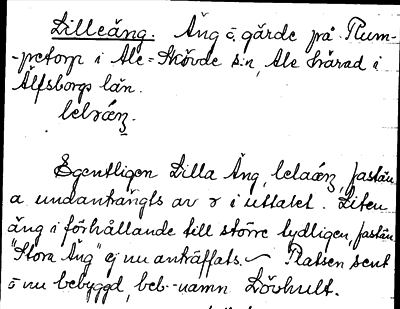 Lilleäng. Äng o. gärde på Plum-
-petorp i Ale-Skövde s:n, Ale härad i
Älfsborgs län.
lelraŋ.
Egentligen Lilla Äng, lelaäŋ, fastän
a undanträngts av r i uttalet. Liten
äng i förhållande till större tydligen, fastän
"Stora Äng" ej nu anträffats. – Platsen sent
o. nu bebyggd, beb.-namn Lövhult.